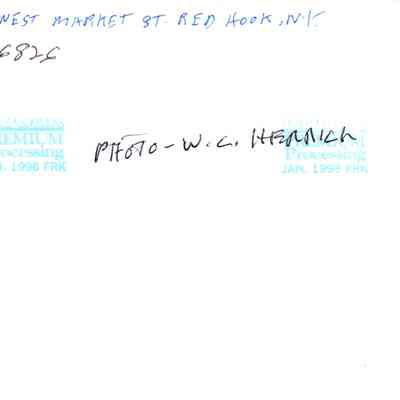 WEST MARKET ST. RED HOOK, N.Y.
6826
PREMIUM
Processing
JAN. 1998 FRK
PHOTO - W. C. HERRICK
PREMIUM
Processing
JAN. 1998 FRK